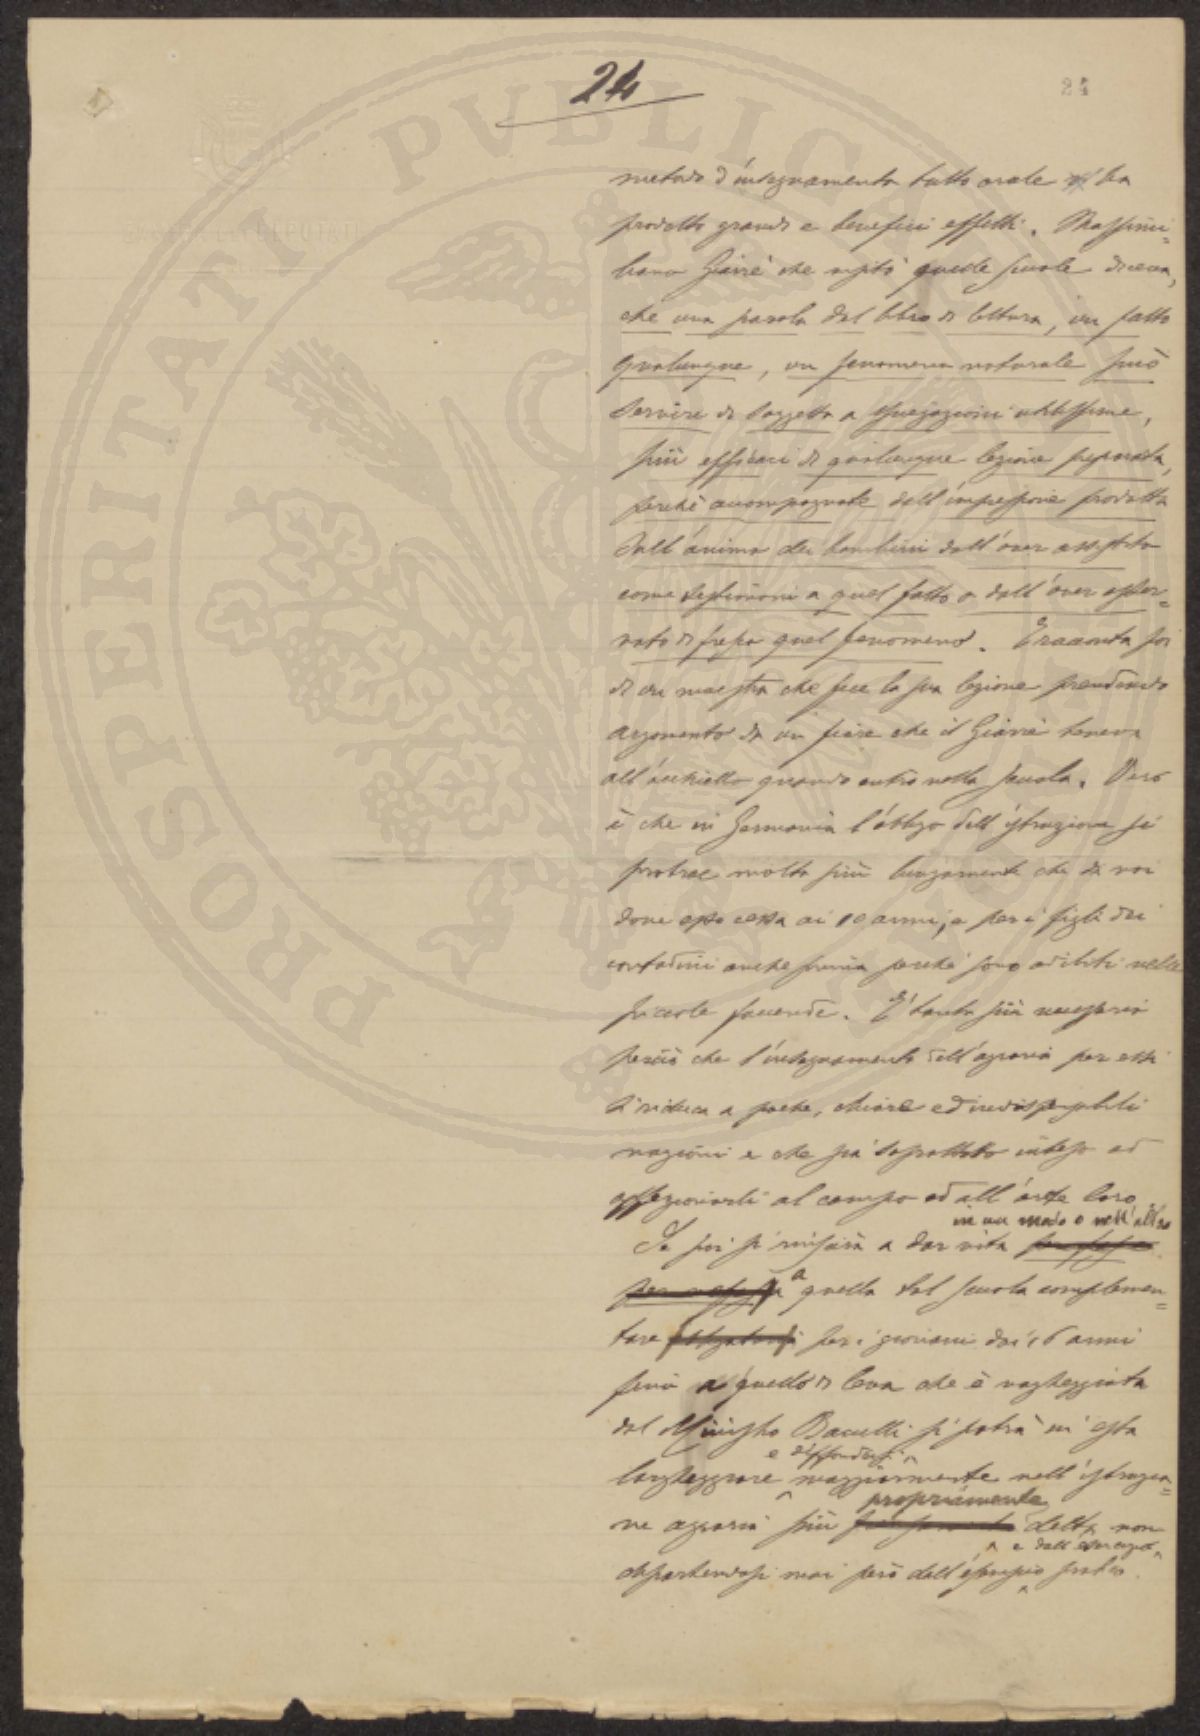 24
24
metodo d'insegnamento tutto orale ha
prodotto grandi e benefici effetti. Massimi=
liano Giarrè che visitò quelle scuole diceva,
che una parola del libro di lettura, un fatto
qualunque, un fenomeno naturale può
servire di soggetto a spiegazioni utilissime,
più efficaci di qualunque lezione preparata,
perché accompagnate dall'impressione prodotta
sull'animo dei bambini dall'aver assistito
come testimoni a quel fatto o dall'aver osser=
vato di fresco quel fenomeno. E racconta poi
di un maestro che fece la sua lezione prendendo
argomento da un fiore che il Giarrè teneva
all'occhiello quando entrò nella scuola. Vero
è che in Germania l'obbligo dell'istruzione si
protrae molto più lungamente che da noi
dove esso cessa ai 10 anni, e per i figli dei
contadini anche prima perché sono adibiti nelle
piccole faccende. È tanto più necessario
perciò che l'insegnamento dell'agraria per essi
si riduca a poche, chiare ed indispensabili
nozioni e che sia soprattutto inteso ad
affezionarli al campo ed all'arte loro.
in un modo o nell'altro
Se poi si riuscirà a dar vita
a quella tal scuola complemen=
tare obbligatoria per i giovani dai 16 anni
fino a quello di leva che è vagheggiata
dal Ministro Baccelli si potrà in essa
e diffondersi
largheggiare maggiormente nell'istruzio=
propriamente
ne agraria più detta non
e dall'esempio
dipartendosi mai però dall'esempio pratico.
PROSPERITATI PVBLICAE